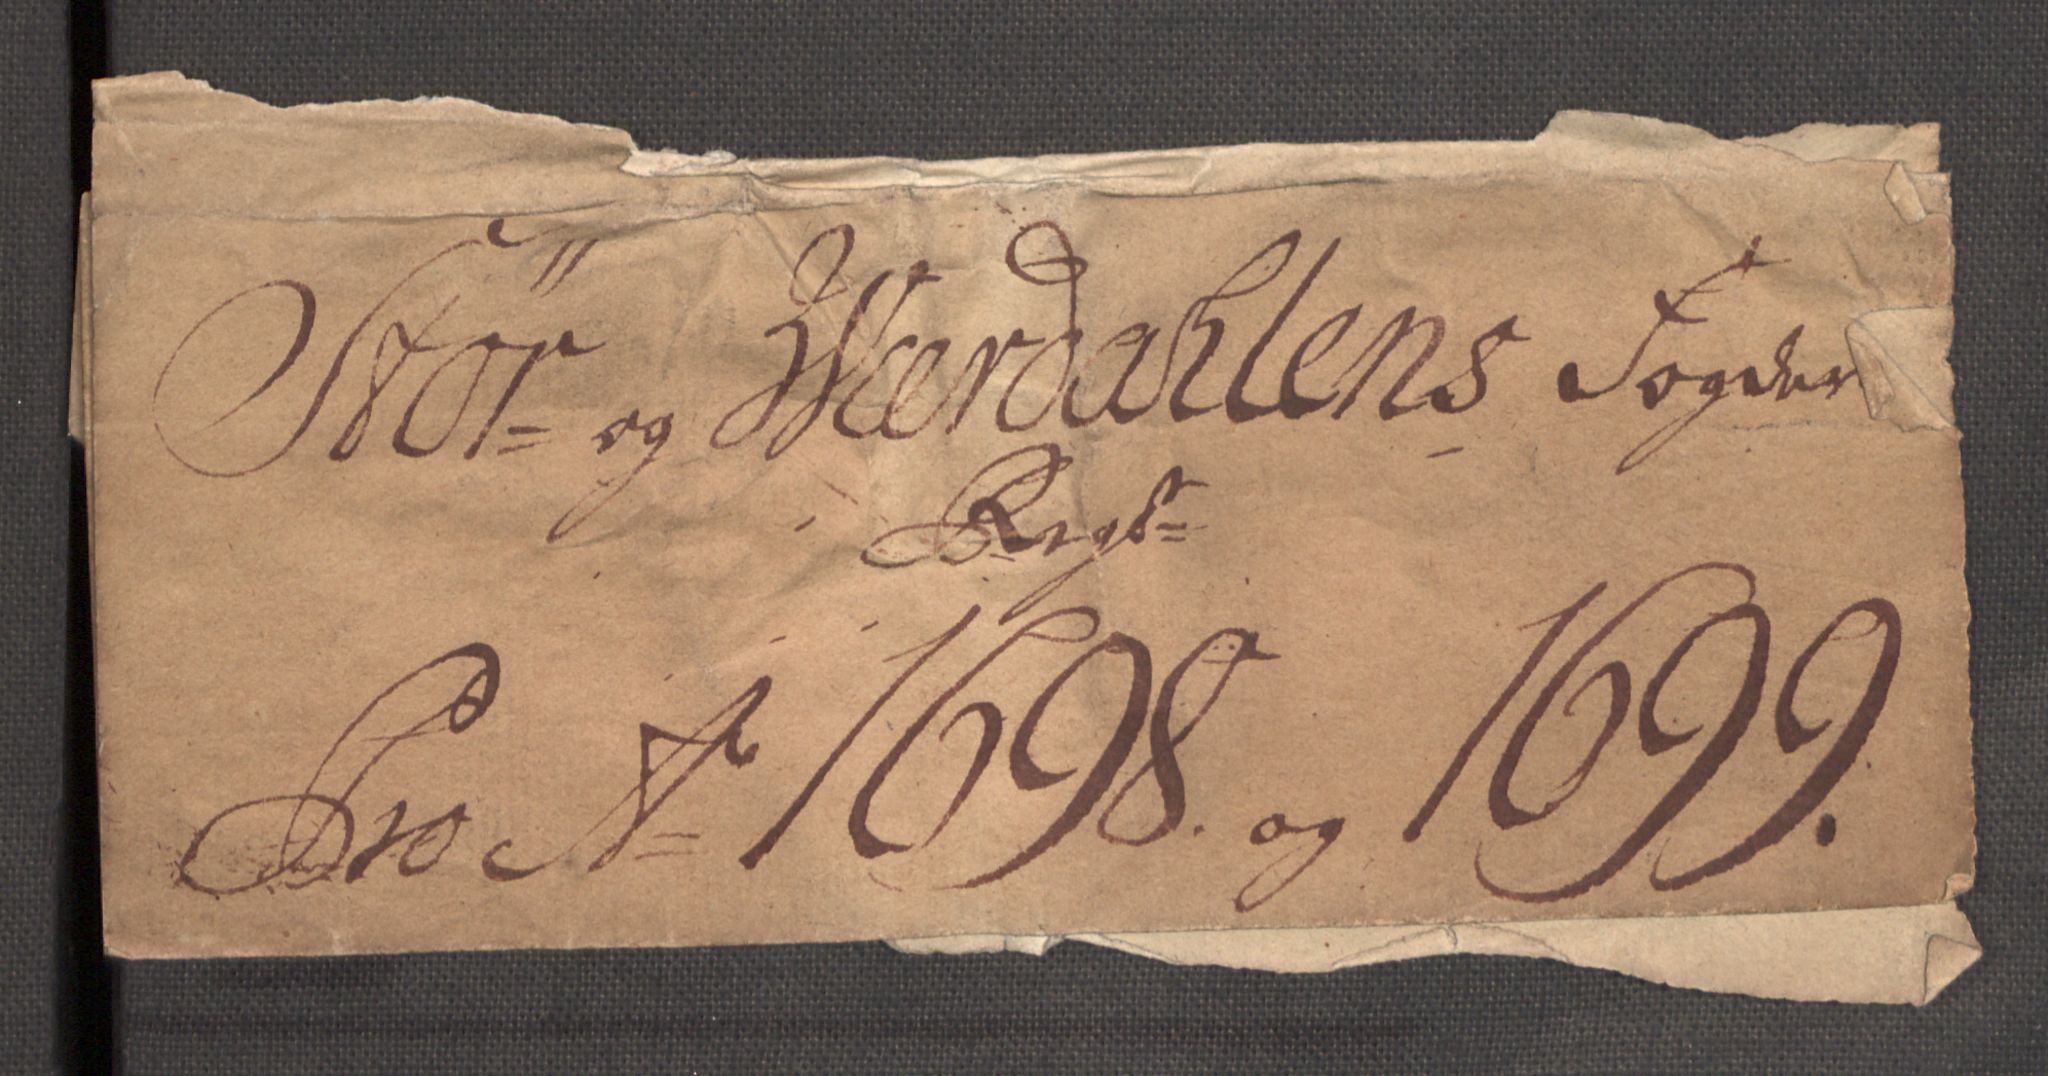 Stör= og Wærdahlens Fogder
Regs=
Pro A= 1698. og 1699.